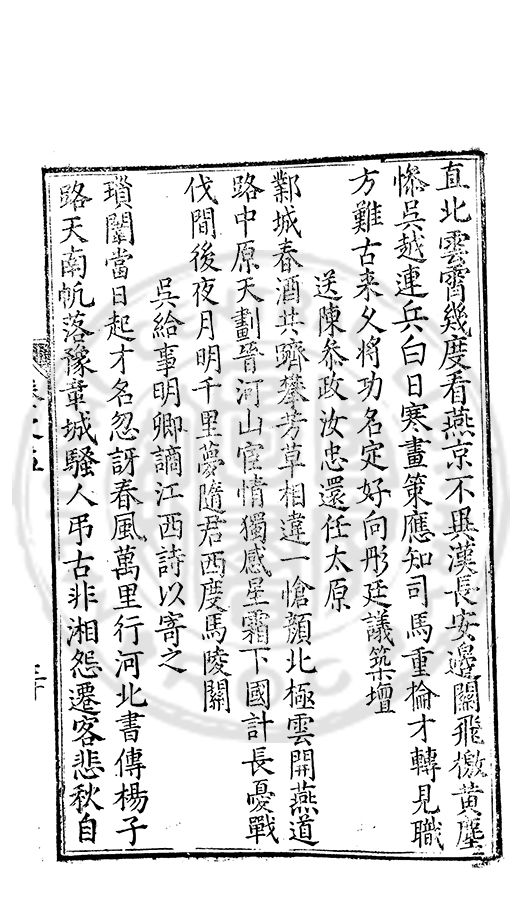 直北雲霄幾度看燕京不異漢長安邊關飛檄黃塵
慘吳越連兵白日寒畫策應知司馬重掄才轉見職
方難古来久将功名定好向彤廷議築壇
送陳叅政汝忠還任太原
鄴城春酒共躋攀芳草相違一愴顏北極雲開燕道
路中原天劃晉河山宦情獨感星霜下國計長憂戰
伐間後夜月明千里夢隨君西度馬陵關
吳給事明卿謫江西詩以寄之
瑣闈當日起才名忽訝春風萬里行河北書傳楊子
路天南帆落豫章城騷人弔古非湘怨遷客悲秋自
卷之五